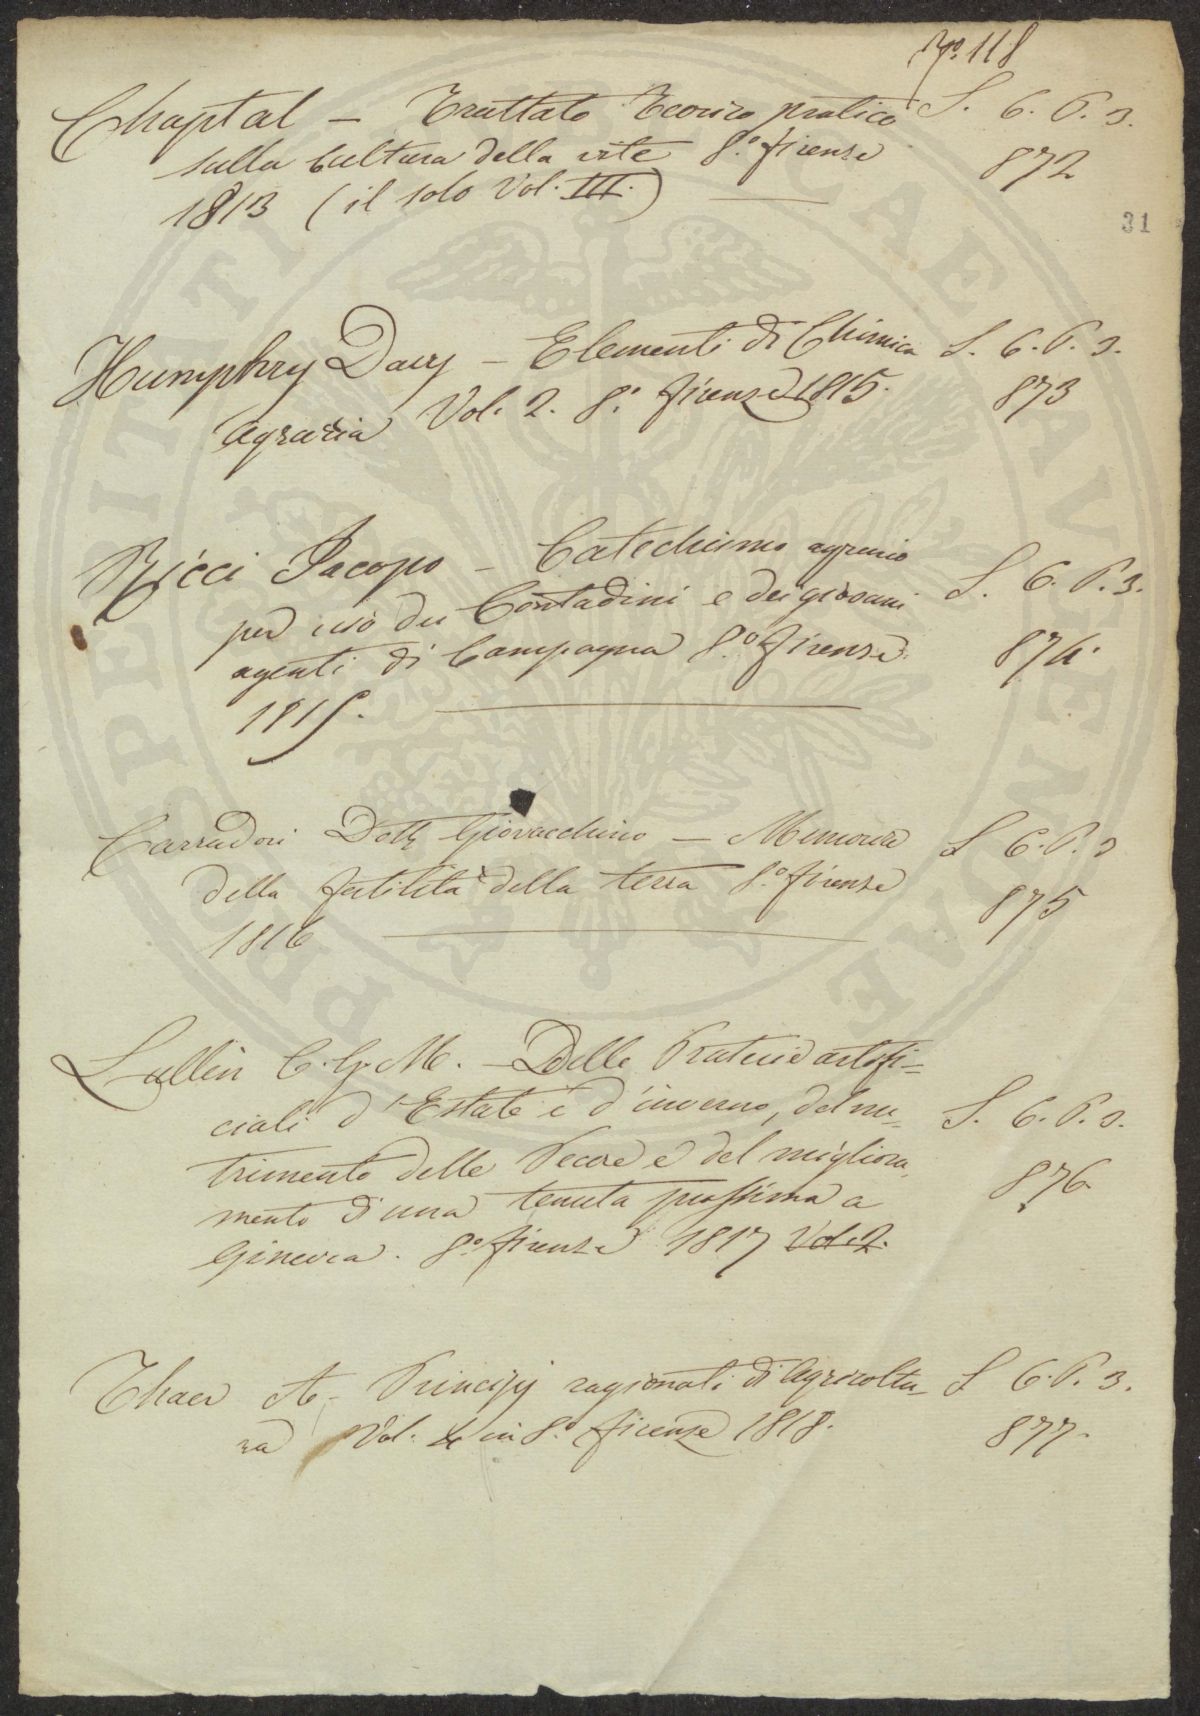 N.º 118
Chaptal – Trattato Teorico pratico S. 6. P. 3.
sulla Cultura della vite 8.º Firenze 872
1813 (il solo Vol. III.)
31
Humphry Davy – Elementi di Chimica S. 6. P. 3.
Agraria Vol. 2. 8.º Firenze 1815. 873
Ricci Jacopo – Catechismo agrario
per uso dei Contadini e dei giovani S. 6. P. 3.
agenti di Campagna 8.º Firenze 874.
1815.
Carradori Dott. Giovacchino – Memoria S. 6. P. 3
della fertilità della terra 8.º Firenze 875
1816
Lullin C. G. M. – Delle Praterie artifi=
ciali d'Estate e d'inverno, del nu= S. 6. P. 3.
trimento delle Pecore e del migliora
mento d'una tenuta prossima a 876.
Ginevra. 8.º Firenze 1817 Vol. 2.
Thaer A – Principj ragionati di Agricoltu S. 6. P. 3.
ra Vol. 4 in 8.º Firenze 1818. 877.
PROSPERITATI PUBLICAE AUGENDAE